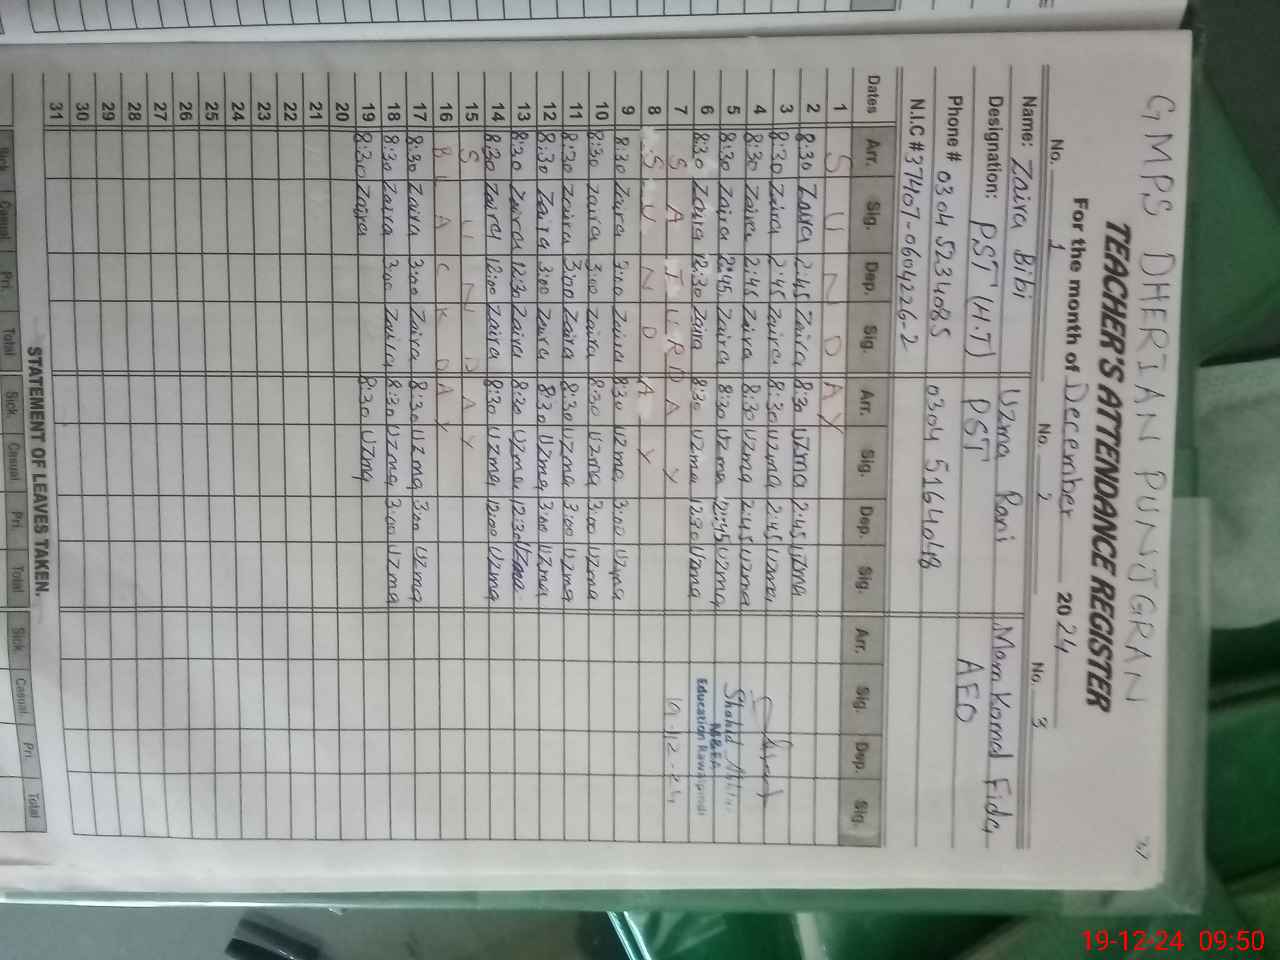 GMPS DHERIAN PUNJGRAN
TEACHER'S ATTENDANCE REGISTER
For the month of December 2024
No. 1 No. 2 No. 3
Name: Zaira Bibi Uzma Rani Mam Komal Fida
Designation: PST (H.T) PST AEO
Phone # 0304 5234085 0304 5164048
N.I.C # 37407-0604226-2
Dates Arr. Sig. Dep. Sig. Arr. Sig. Dep. Sig. Arr. Sig. Dep. Sig.
1 S U N D A Y
2 8:30 Zaira 2:45 Zaira 8:30 Uzma 2:45 Uzma
3 8:30 Zaira 2:45 Zaira 8:30 Uzma 2:45 Uzma
4 8:30 Zaira 2:45 Zaira 8:30 Uzma 2:45 Uzma
5 8:30 Zaira 2:45 Zaira 8:30 Uzma 2:45 Uzma Shahid
6 8:30 Zaira 12:30 Zaira 8:30 Uzma 12:30 Uzma M&EA
Education Rawalpindi
7 S A T U R D A Y 19-12-24
8 S U N D A Y
9 8:30 Zaira 3:00 Zaira 8:30 Uzma 3:00 Uzma
10 8:30 Zaira 3:00 Zaira 8:30 Uzma 3:00 Uzma
11 8:30 Zaira 3:00 Zaira 8:30 Uzma 3:00 Uzma
12 8:30 Zaira 3:00 Zaira 8:30 Uzma 3:00 Uzma
13 8:30 Zaira 12:30 Zaira 8:30 Uzma 12:30 Uzma
14 8:30 Zaira 12:00 Zaira 8:30 Uzma 12:00 Uzma
15 S U N D A Y
16 B L A C K D A Y
17 8:30 Zaira 3:00 Zaira 8:30 Uzma 3:00 Uzma
18 8:30 Zaira 3:00 Zaira 8:30 Uzma 3:00 Uzma
19 8:30 Zaira 8:30 Uzma
20
21
22
23
24
25
26
27
28
29
30
31
STATEMENT OF LEAVES TAKEN.
Sick Casual Pri. Total Sick Casual Pri. Total Sick Casual Pri. Total
19-12-24 09:50